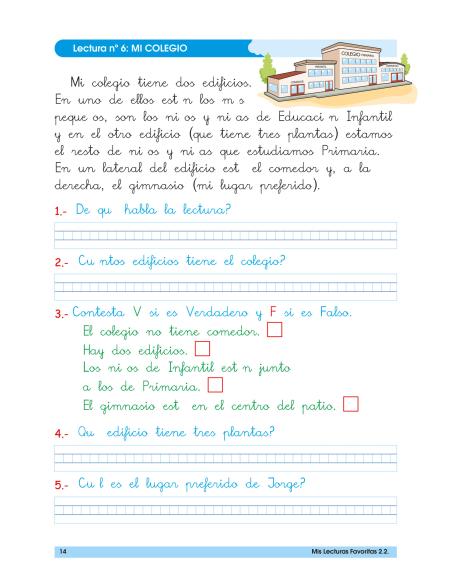 Lectura nº 6: MI COLEGIO
COLEGIO PRIMARIA
Mi colegio tiene dos edificios.
En uno de ellos est n los m s
peque os, son los ni os y ni as de Educaci n Infantil
y en el otro edificio (que tiene tres plantas) estamos
el resto de ni os y ni as que estudiamos Primaria.
En un lateral del edificio est el comedor y, a la
derecha, el gimnasio (mi lugar preferido).
1.- De qu habla la lectura?
2.- Cu ntos edificios tiene el colegio?
3.- Contesta V si es Verdadero y F si es Falso.
El colegio no tiene comedor.
Hay dos edificios.
Los ni os de Infantil est n junto
a los de Primaria.
El gimnasio est en el centro del patio.
4.- Qu edificio tiene tres plantas?
5.- Cu l es el lugar preferido de Jorge?
14 Mis Lecturas Favoritas 2.2.